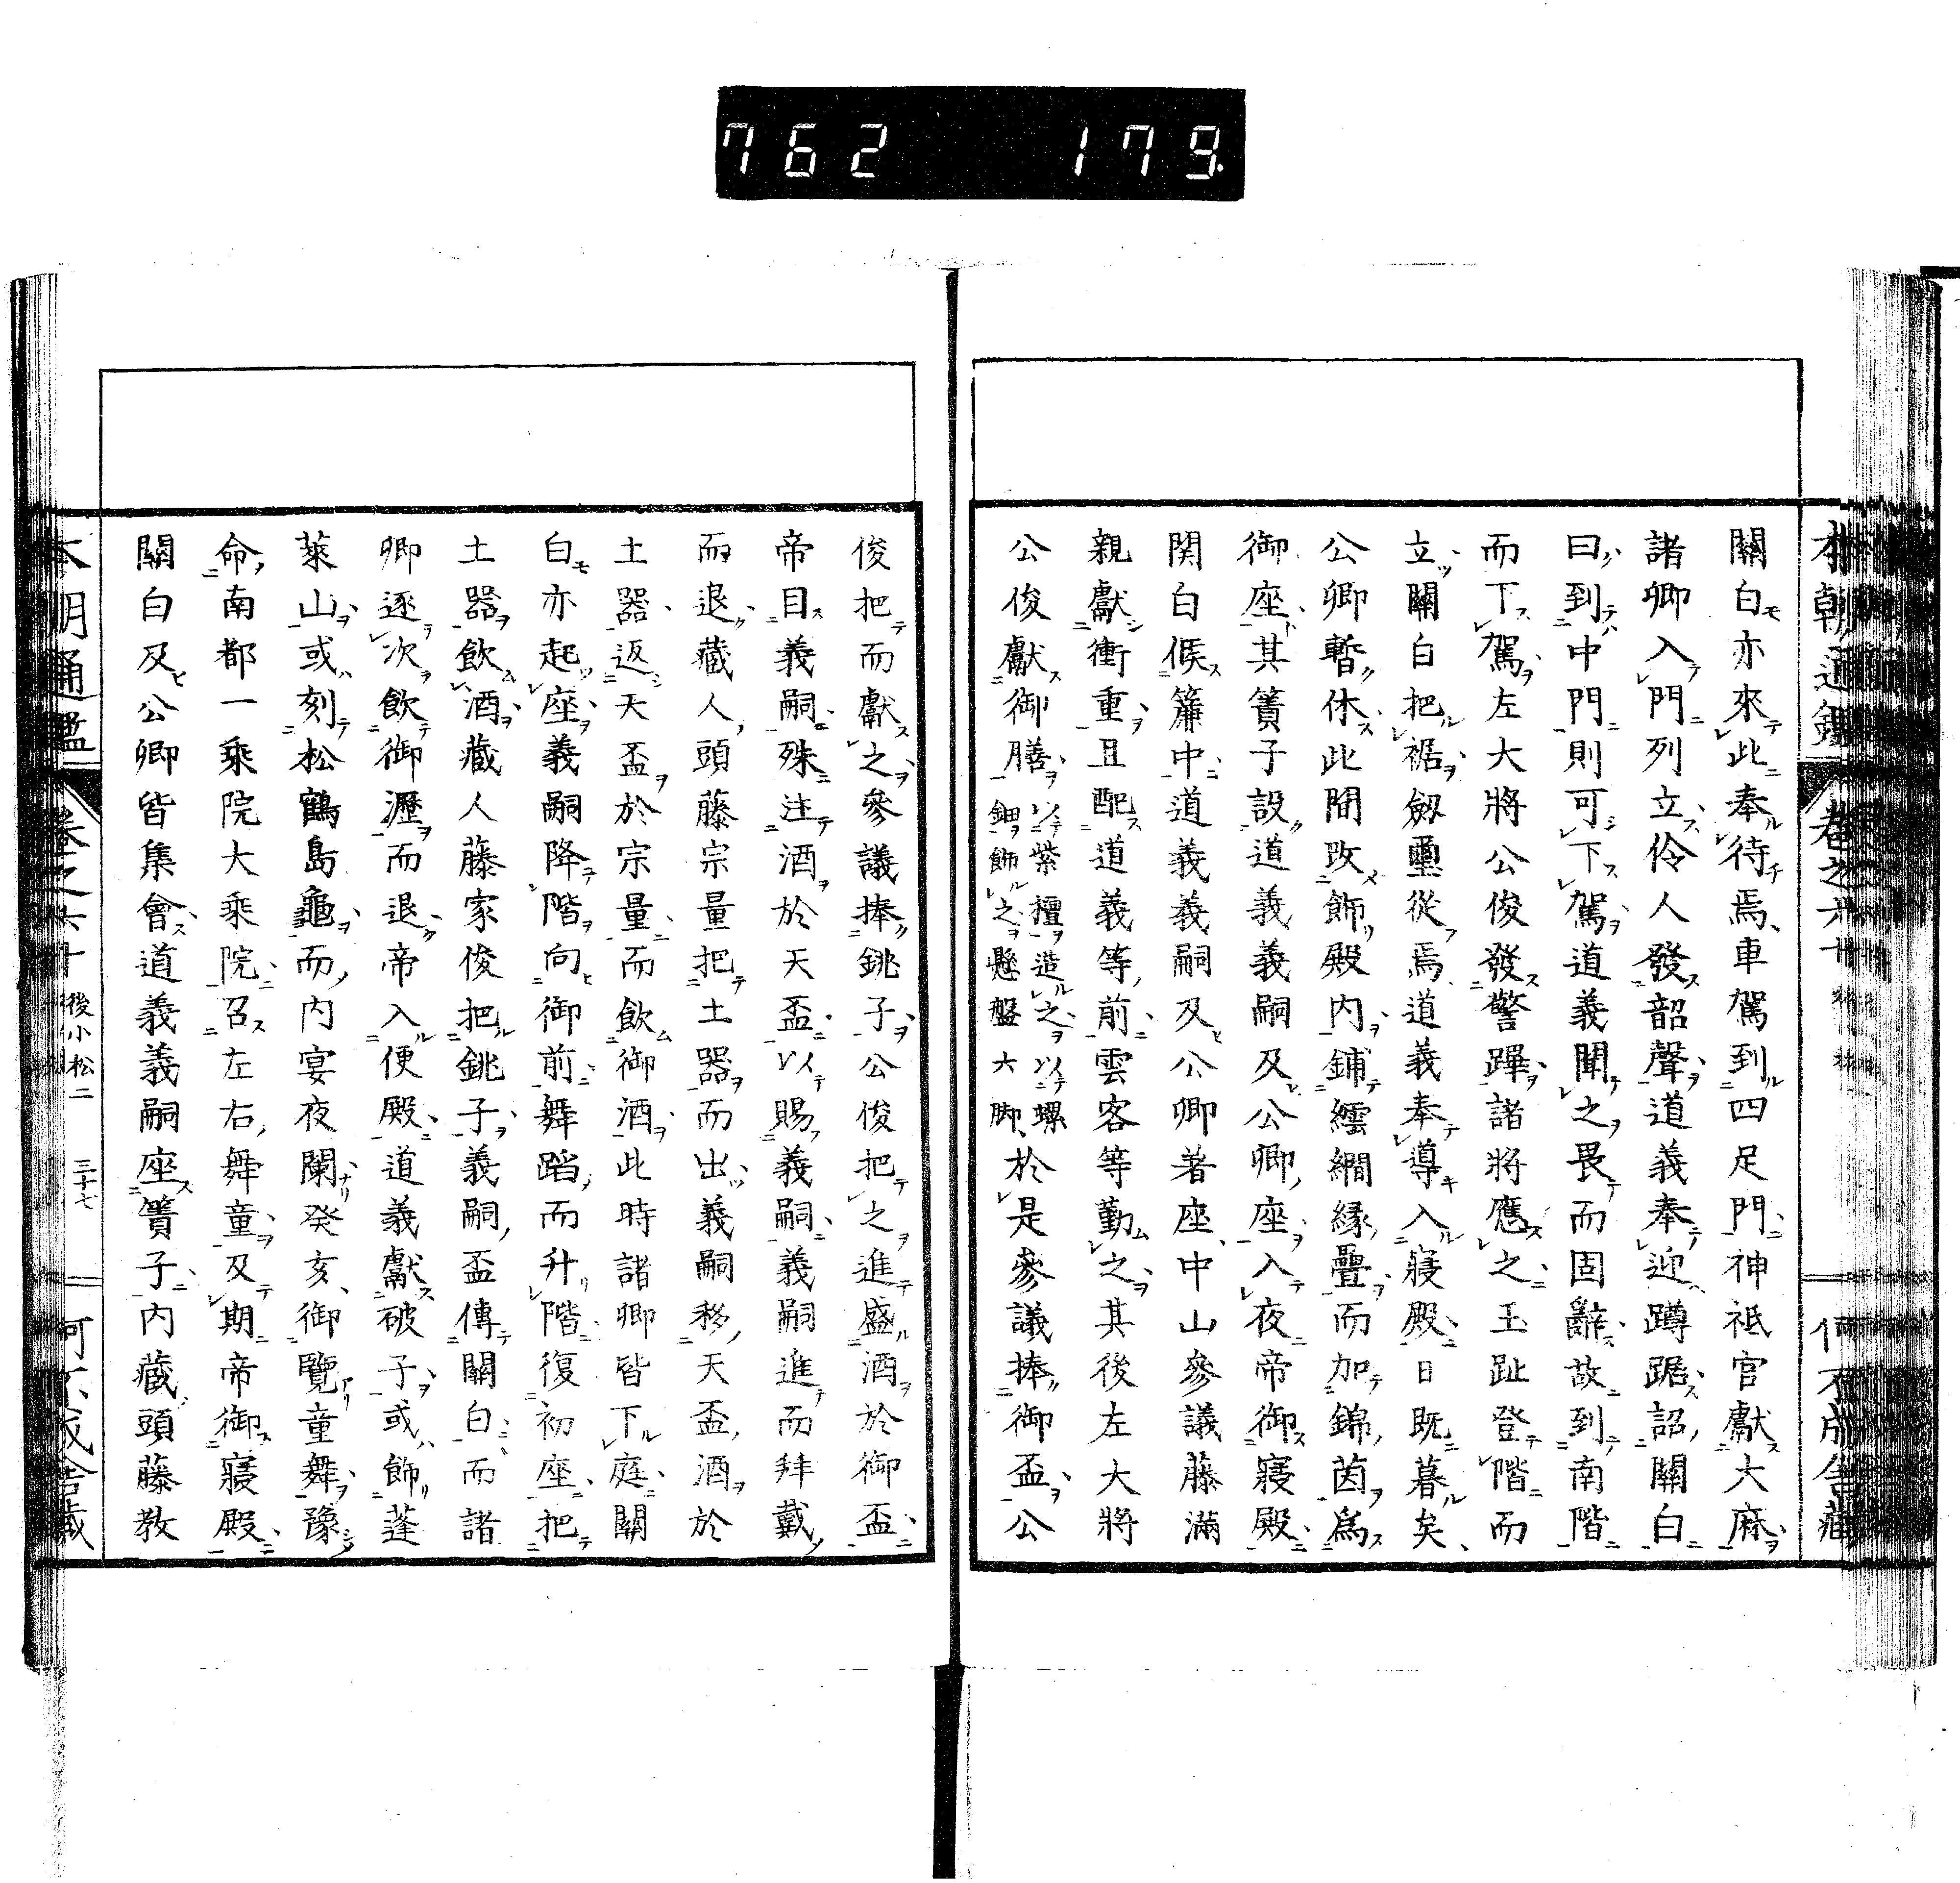 762 179
關白亦來此奉待焉車駕到四足門神祇官獻大麻
諸卿入門列立伶人發韶聲道義奉迎蹲踞詔關白
曰到中門則可下駕道義聞之畏而固辭故到南階
而下駕左大將公俊發警蹕諸將應之玉趾登階而
立關白把裾劔璽從焉道義奉導入寢殿日既暮矣
公卿暫休此間改飾殿内鋪繧繝縁疊而加錦茵爲
御座其簀子設道義義嗣及公卿座入夜帝御寢殿
関白候簾中道義義嗣及公卿著座中山參議藤滿
親獻衝重且配道義等前雲客等勤之其後左大將
公俊獻御膳以紫檀造之以螺鈿飾之懸盤六脚於是參議捧御盃公
俊把而獻之參議捧銚子公俊把之進盛酒於御盃
帝目義嗣殊注酒於天盃以賜義嗣義嗣進而拜戴
而退藏人頭藤宗量把土器而出義嗣移天盃酒於
土器返天盃於宗量而飮御酒此時諸卿皆下庭關
白亦起座義嗣降階向御前舞蹈而升階復初座把
土器飮酒藏人藤家俊把銚子義嗣盃傳關白而諸
卿逐次飮御瀝而退帝入便殿道義獻破子或飾蓬
萊山或刻松鶴島龜而内宴夜闌癸亥御覽童舞豫
命南都一乘院大乘院召左右舞童及期帝御寢殿
關白及公卿皆集會道義義嗣座簀子内藏頭藤教
本朝通鑑 卷之六十 後小松二 三十七